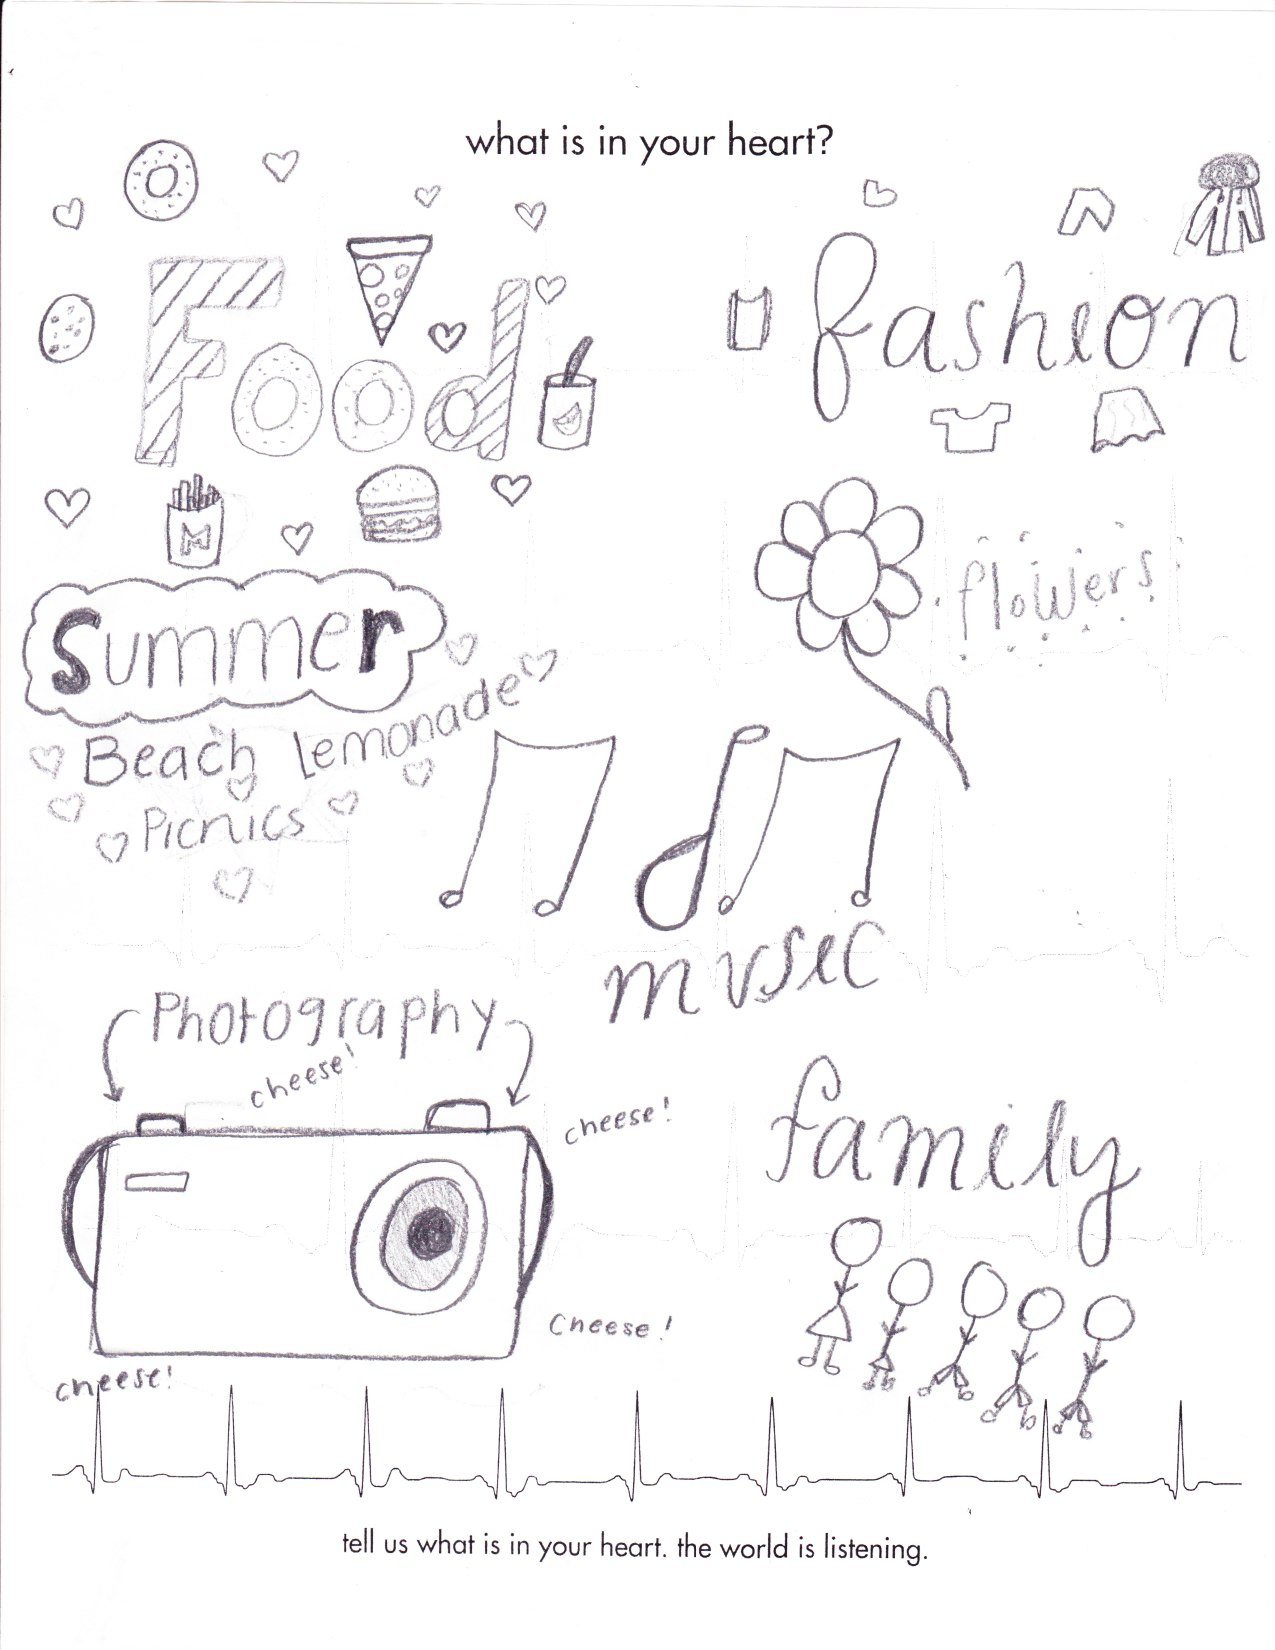 what is in your heart?
Food
fashion
M
flowers
Summer
Beach Lemonade
Picnics
music
Photography
cheese!
cheese!
family
cheese!
cheese!
tell us what is in your heart. the world is listening.